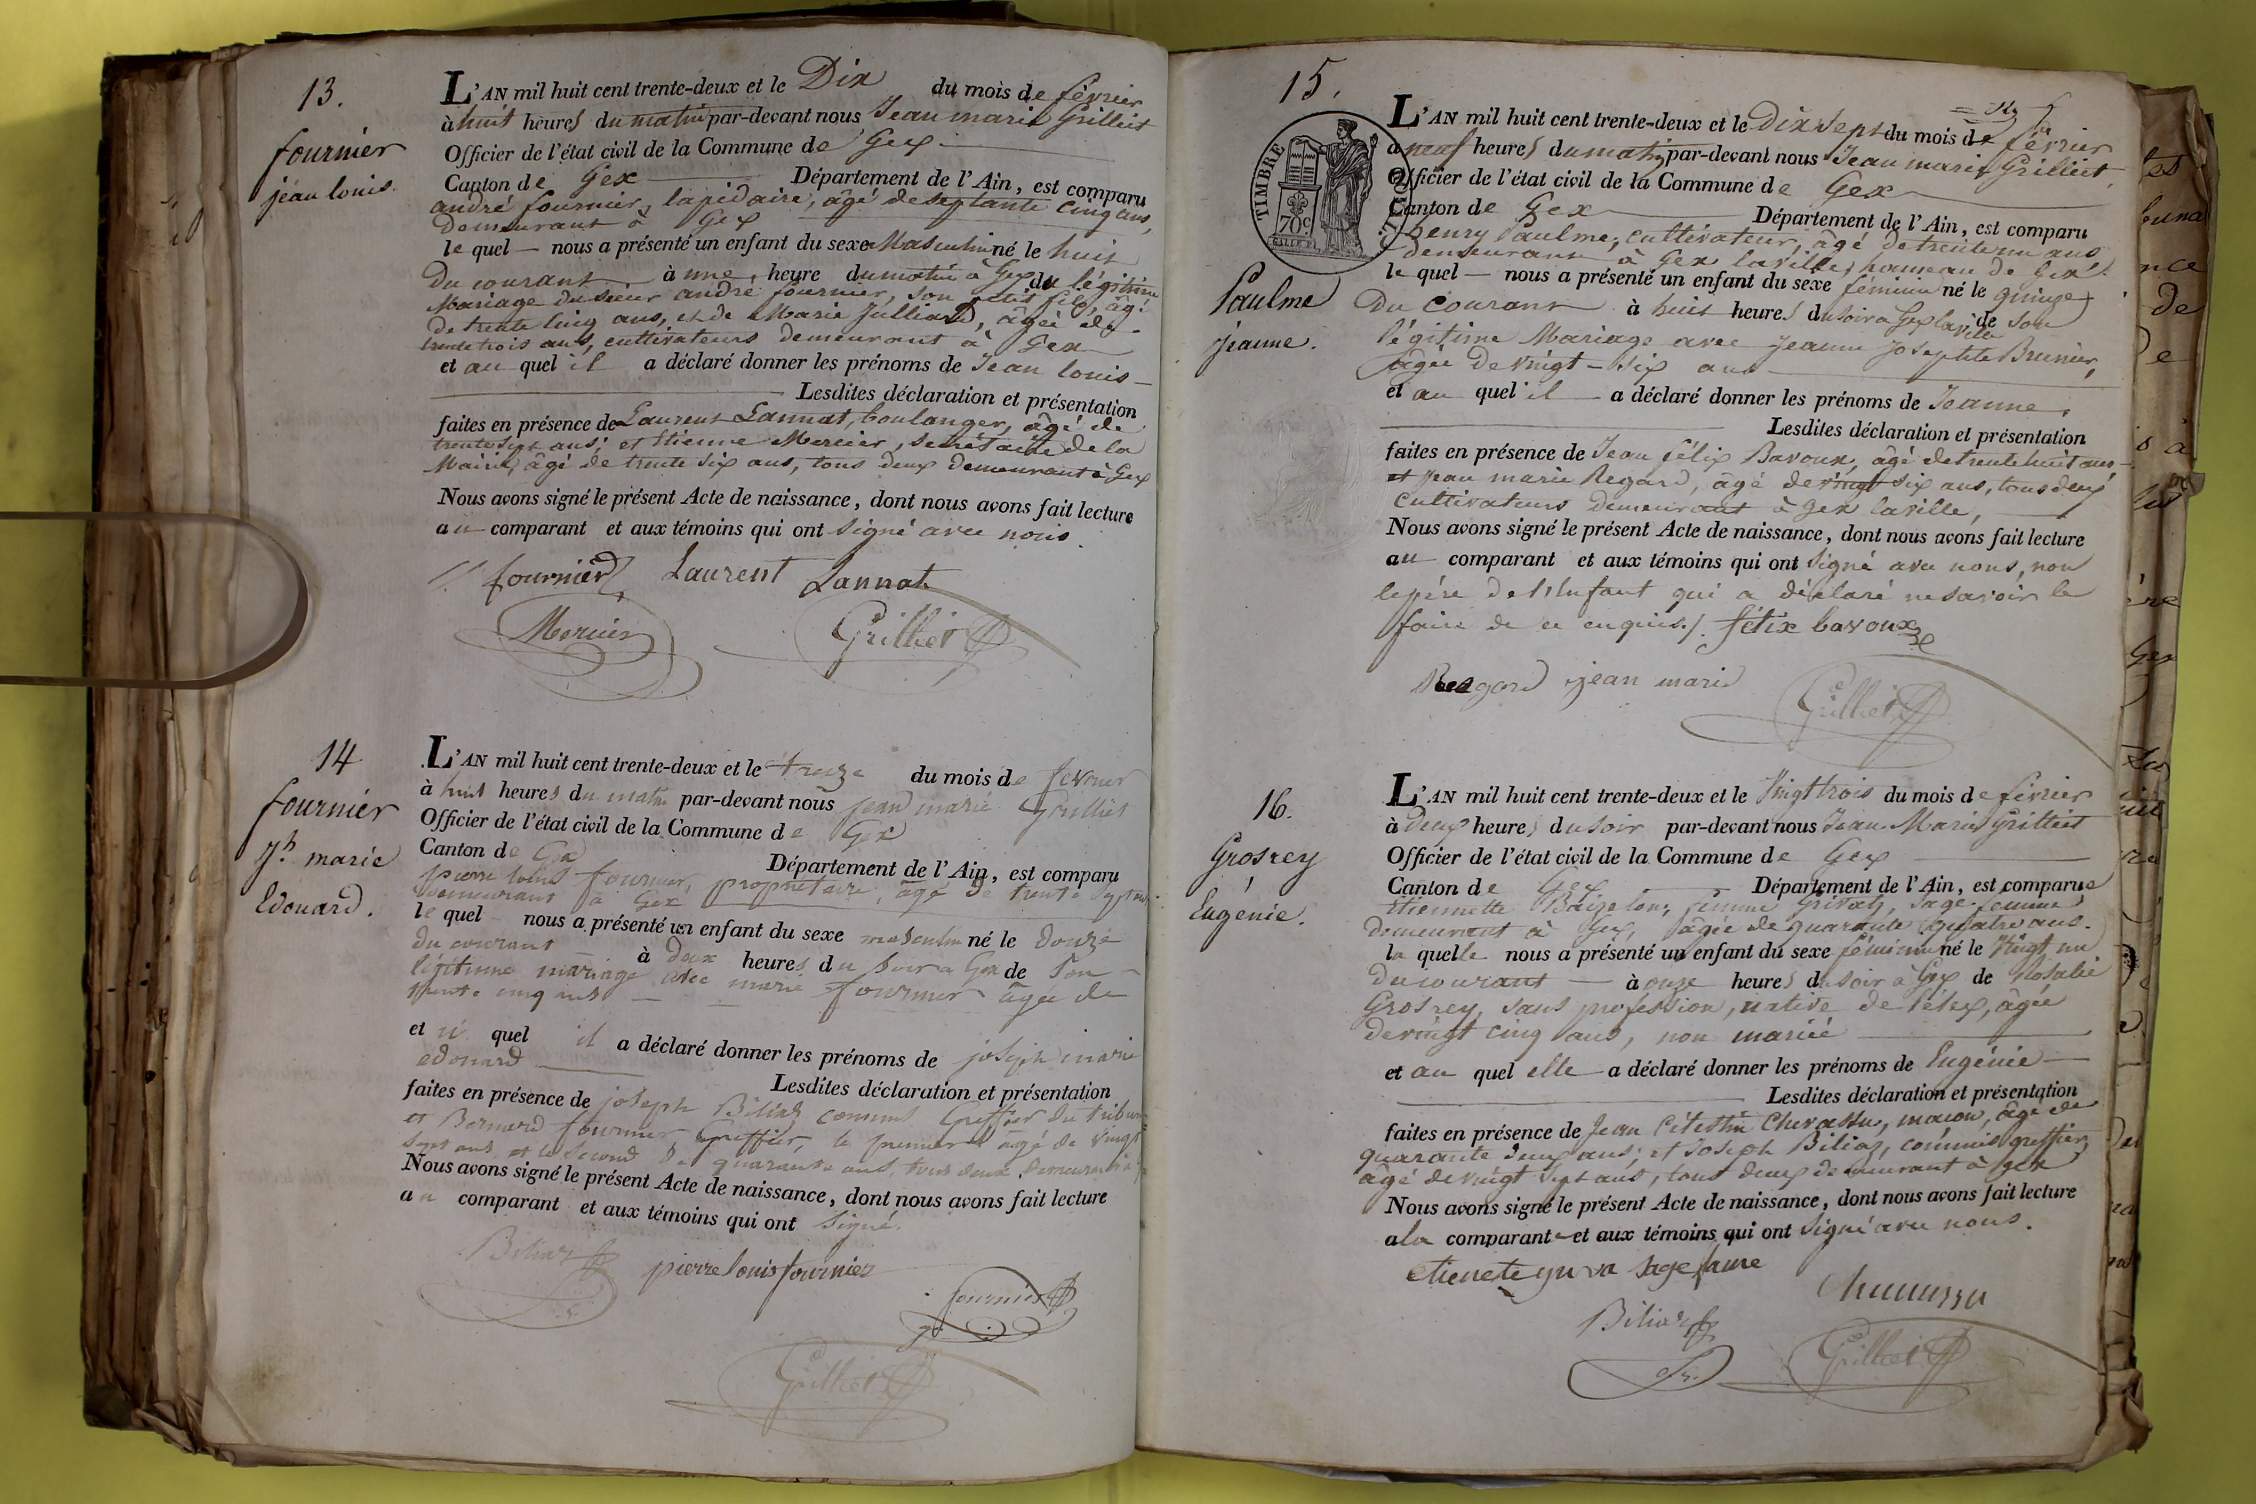 13.
fournier
jean louis.
L'AN mil huit cent trente-deux et le Dix du mois de février
à huit heures du matin par-devant nous Jean marie Grilliet
Officier de l'état civil de la Commune de Gex
Canton de Gex Département de l'Ain, est comparu
andré fournier, lapidaire, âgé de septante cinq ans,
demeurant à Gex
le quel nous a présenté un enfant du sexe Masculin né le huit
du courant à une heure du matin à Gex du légitime
Mariage du sieur andré fournier, son petit fils, âgé
de trente cinq ans, et de Marie Julliard, âgée de
trente trois ans, cultivateurs demeurant à Gex
et au quel il a déclaré donner les prénoms de Jean louis
Lesdites déclaration et présentation
faites en présence de Laurent Lannat, boulanger, âgé de
trente sept ans; et Etienne Mercier, secrétaire de la
Mairie, âgé de trente six ans, tous deux demeurant à Gex
Nous avons signé le présent Acte de naissance, dont nous avons fait lecture
au comparant et aux témoins qui ont signé avec nous.
fournier Laurent Lannat
Mercier Grilliet
14
fournier
Jh. marie
Edouard.
L'AN mil huit cent trente-deux et le treize du mois de fevrier
à huit heures du matin par-devant nous jean marie Grilliet
Officier de l'état civil de la Commune de Gex
Canton de Gex Département de l'Ain, est comparu
pierre louis fournier, propriétaire, âgé de trente sept ans
demeurant à Gex
le quel nous a présenté un enfant du sexe masculin né le douze
du courant à deux heures du soir à Gex de son
légitime mariage avec marie fournier âgée de
trente cinq ans
et quel il a déclaré donner les prénoms de joseph marie
edouard
Lesdites déclaration et présentation
faites en présence de joseph Biliaz commis Greffier du tribunal
et Bernard fournier, Greffier, le premier âgé de vingt
sept ans et le second de quarante ans, tous deux demeurant à
Nous avons signé le présent Acte de naissance, dont nous avons fait lecture
au comparant et aux témoins qui ont signé.
Biliaz pierre louis fournier
fournier
Grilliet
15.
TIMBRE
70c
Paulme
jeanne.
L'AN mil huit cent trente-deux et le Dix sept du mois de février
à neuf heures du matin par-devant nous Jean marie Grilliet
Officier de l'état civil de la Commune de Gex
Canton de Gex Département de l'Ain, est comparu
henry Paulme, cultivateur, âgé de trente un ans
demeurant à Gex laville, hameau de Gex
le quel nous a présenté un enfant du sexe féminin né le quinze
du courant à huit heures du soir à Gex laville de son
légitime Mariage avec Jeanne Josephte Brunier,
âgée de vingt-six ans
et au quel il a déclaré donner les prénoms de Jeanne.
Lesdites déclaration et présentation
faites en présence de Jean félix Bavoux, âgé de trente huit ans
et Jean marie Regard, âgé de vingt six ans, tous deux
cultivateurs demeurant à Gex laville,
Nous avons signé le présent Acte de naissance, dont nous avons fait lecture
au comparant et aux témoins qui ont signé avec nous, non
le père de l'Enfant qui a déclaré ne savoir le
faire de ce enquis./. félix bavoux
Regard jean marie
Grilliet
16.
Grosrey
Eugénie.
L'AN mil huit cent trente-deux et le Vingt trois du mois de février
à Deux heures du soir par-devant nous Jean Marie Grilliet
Officier de l'état civil de la Commune de Gex
Canton de Gex Département de l'Ain, est comparue
Etiennette femme Grivaz, sage femme
demeurant à Gex, âgée de quarante quatre ans.
la quelle nous a présenté un enfant du sexe féminin né le Vingt un
du courant à onze heures du soir à Gex de Rosalie
Grosrey, sans profession, native de Lélex, âgée
de vingt cinq ans, non mariée
et au quel elle a déclaré donner les prénoms de Eugénie
Lesdites déclaration et présentation
faites en présence de Jean Célestin Chevassus, macon, âgé de
quarante deux ans; et Joseph Biliaz, commis greffier
âgé de vingt sept ans, tous deux demeurant à Gex
Nous avons signé le présent Acte de naissance, dont nous avons fait lecture
à la comparante et aux témoins qui ont signé avec nous.
Biliaz
Grilliet